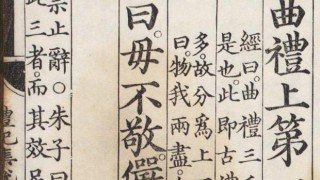 曲禮上第
經曰曲禮三
是也此即古禮
多故分爲上
曰物我兩盡
曰毋不敬儼
禁止辭○朱子曰
此三者而其效
禮記集